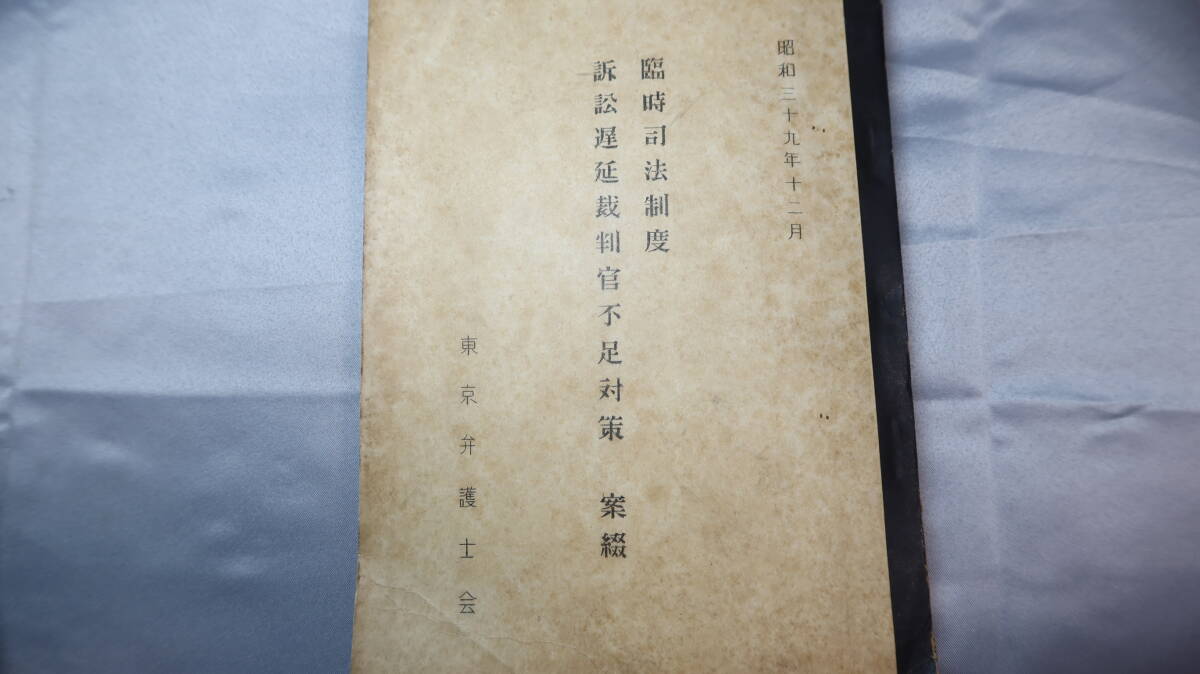 昭和三十九年十二月
臨時司法制度
訴訟遅延裁判官不足対策　案綴
東京弁護士会